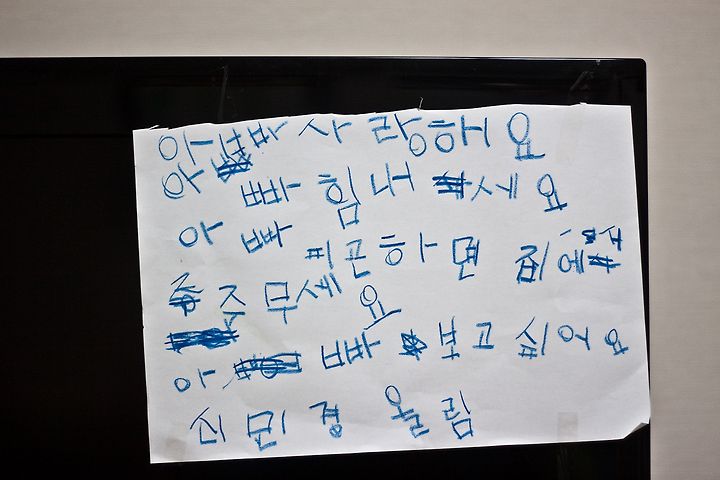 아빠 사랑해요
아 빠 힘내 세요
아 빠 피곤하면 집에서
주무세요
아 빠 보고 싶어요
신민경 올림